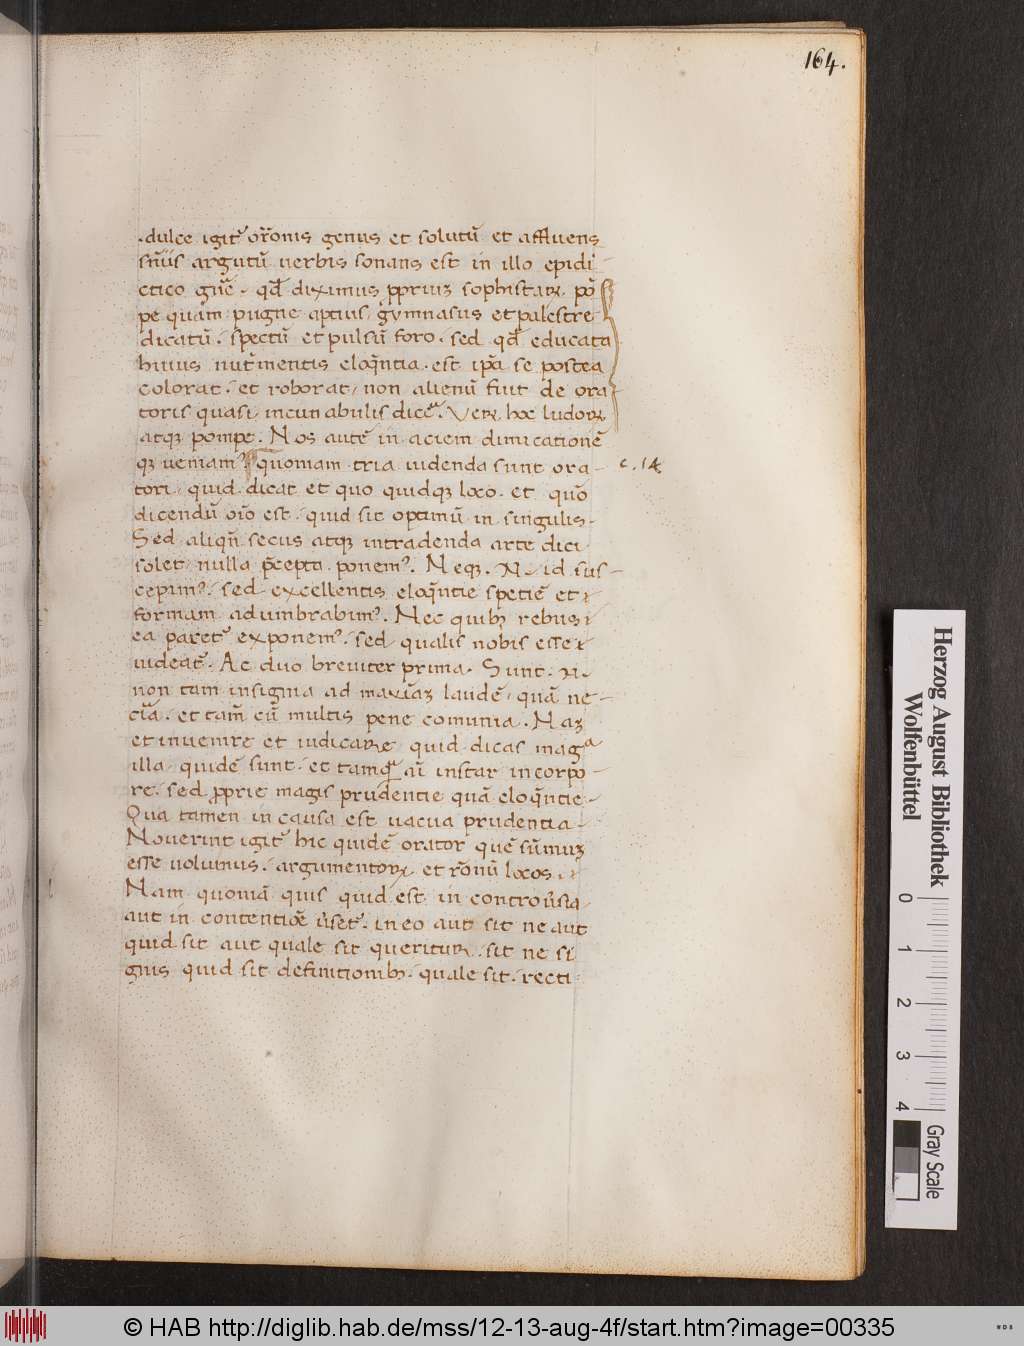 164.
.dulce igit᷑ or̄onis genus et solutū et affluens
sn̄iis argutū uerbis sonans est in illo epidi
ctico gn̄e. qđ diximus ꝓpriuꝫ sophistaꝝ pō
pe quam pugne aptius, gymnasus et palestre
dicatū. spectū et pulsū foro. sed qđ educata
huius nut᷑mentis eloq̄ntia. est ip̄a se postea
colorat. et roborat, non alienū fuit de ora
toris quasi, incunabulis dicĕ. Veꝝ hoc ludoꝝ
atqꝫ pompe. Nos autē in aciem dimicationē
qꝫ ueniamꝰ. quoniam tria uidenda sunt ora-
c. 14
tori, quid dicat et quo quidqꝫ loco. et quō
dicendū oīo est. quid sit optimū in singulis.
Sed aliqn̄ secus atqꝫ in tradenda arte dici
solet, nulla p̄cepta ponemꝰ. Neqꝫ. N. id sus-
cepimꝰ. sed excellentis eloq̄ntie speciē et
formam adumbrabimꝰ. Nec quibꝫ rebus
ea paret᷑ exponemꝰ. sed qualis nobis esse
uideat᷑. Ac duo breuiter prima. Sunt. N.
non tam insignia ad maxīaꝫ laudē, quā ne-
cīa. et tam̄ cū multis pene comunia. Naꝫ
et inuenire et iudicare, quid dicas magᵃ
illa quidē sunt. et tamq̄ aī instar in corpo-
re. sed ꝓprie magis prudentie quā eloq̄ntie.
Qua tamen in causa est uacua prudentia.
Nouerint igit᷑ hic quidē orator quē sūmuꝫ
esse uolumus. argumentoꝝ et rōnū locos.
Nam quoniā quis quid est in controūsia
aut in contentiōe ūset᷑. in eo aut sit ne aut
quid sit aut quale sit queritur. sit ne si
gnis quid sit definitionibꝫ. quale sit. recti
Herzog August Bibliothek
Wolfenbüttel
0 1 2 3 4
Gray Scale
© HAB http://diglib.hab.de/mss/12-13-aug-4f/start.htm?image=00335